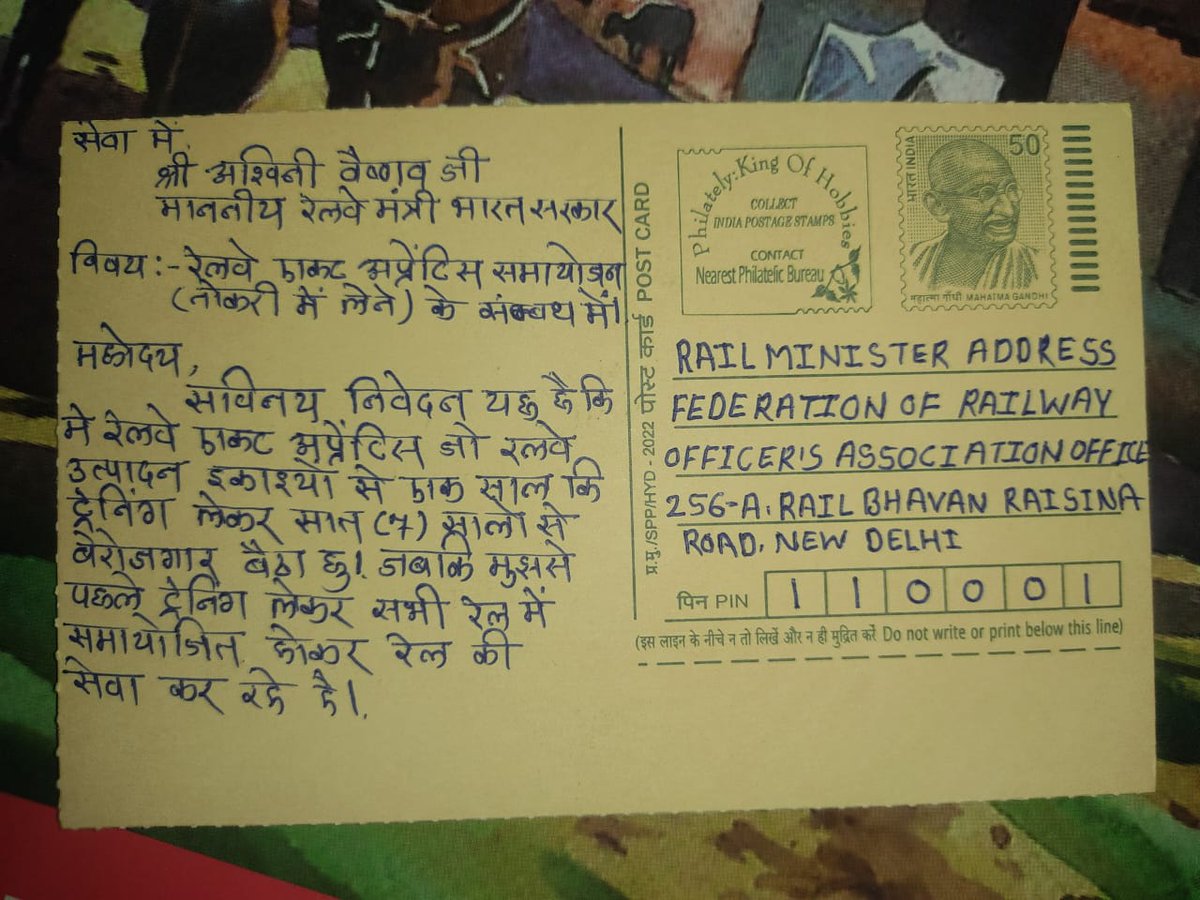 सेवा में,
श्री अश्विनी वैष्णव जी
माननीय रेलवे मंत्री भारत सरकार
विषय :- रेलवे एक्ट अप्रेंटिस समायोजन
(नोकरी में लेने) के संबन्ध में।
महोदय,
सविनय निवेदन यह है कि
मे रेलवे एक्ट अप्रेंटिस जो रेलवे
उत्पादन इकाइयो से एक साल कि
ट्रेनिंग लेकर सात (7) सालो से
बेरोजगार बैठा हु। जबकि मुझसे
पहले ट्रेनिंग लेकर सभी रेल में
समायोजित होकर रेल की
सेवा कर रहे है।
प्र.मु./SPP/HYD - 2022 पोस्ट कार्ड POST CARD
Philately: King Of Hobbies
COLLECT
INDIA POSTAGE STAMPS
CONTACT
Nearest Philatelic Bureau
भारत INDIA
50
महात्मा गाँधी MAHATMA GANDHI
RAIL MINISTER ADDRESS
FEDERATION OF RAILWAY
OFFICER'S ASSOCIATION OFFICE
256-A, RAIL BHAVAN RAISINA
ROAD, NEW DELHI
पिन PIN 1 1 0 0 0 1
(इस लाइन के नीचे न तो लिखें और न ही मुद्रित करें Do not write or print below this line)